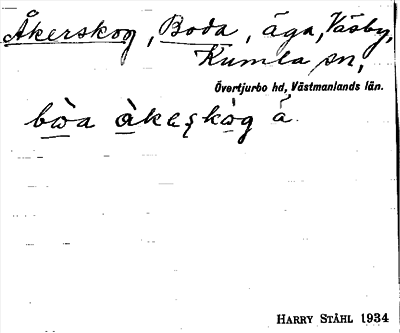 Åkerskog, Boda, äga, Väsby,
Kumla sn,
Övertjurbo hd, Västmanlands län.
bòa àkeʂkòg ä
HARRY STÅHL 1934